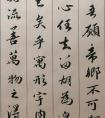 吾願帝鄉不可
心任去留胡為
已矣乎寓形宇內
流善萬物之得